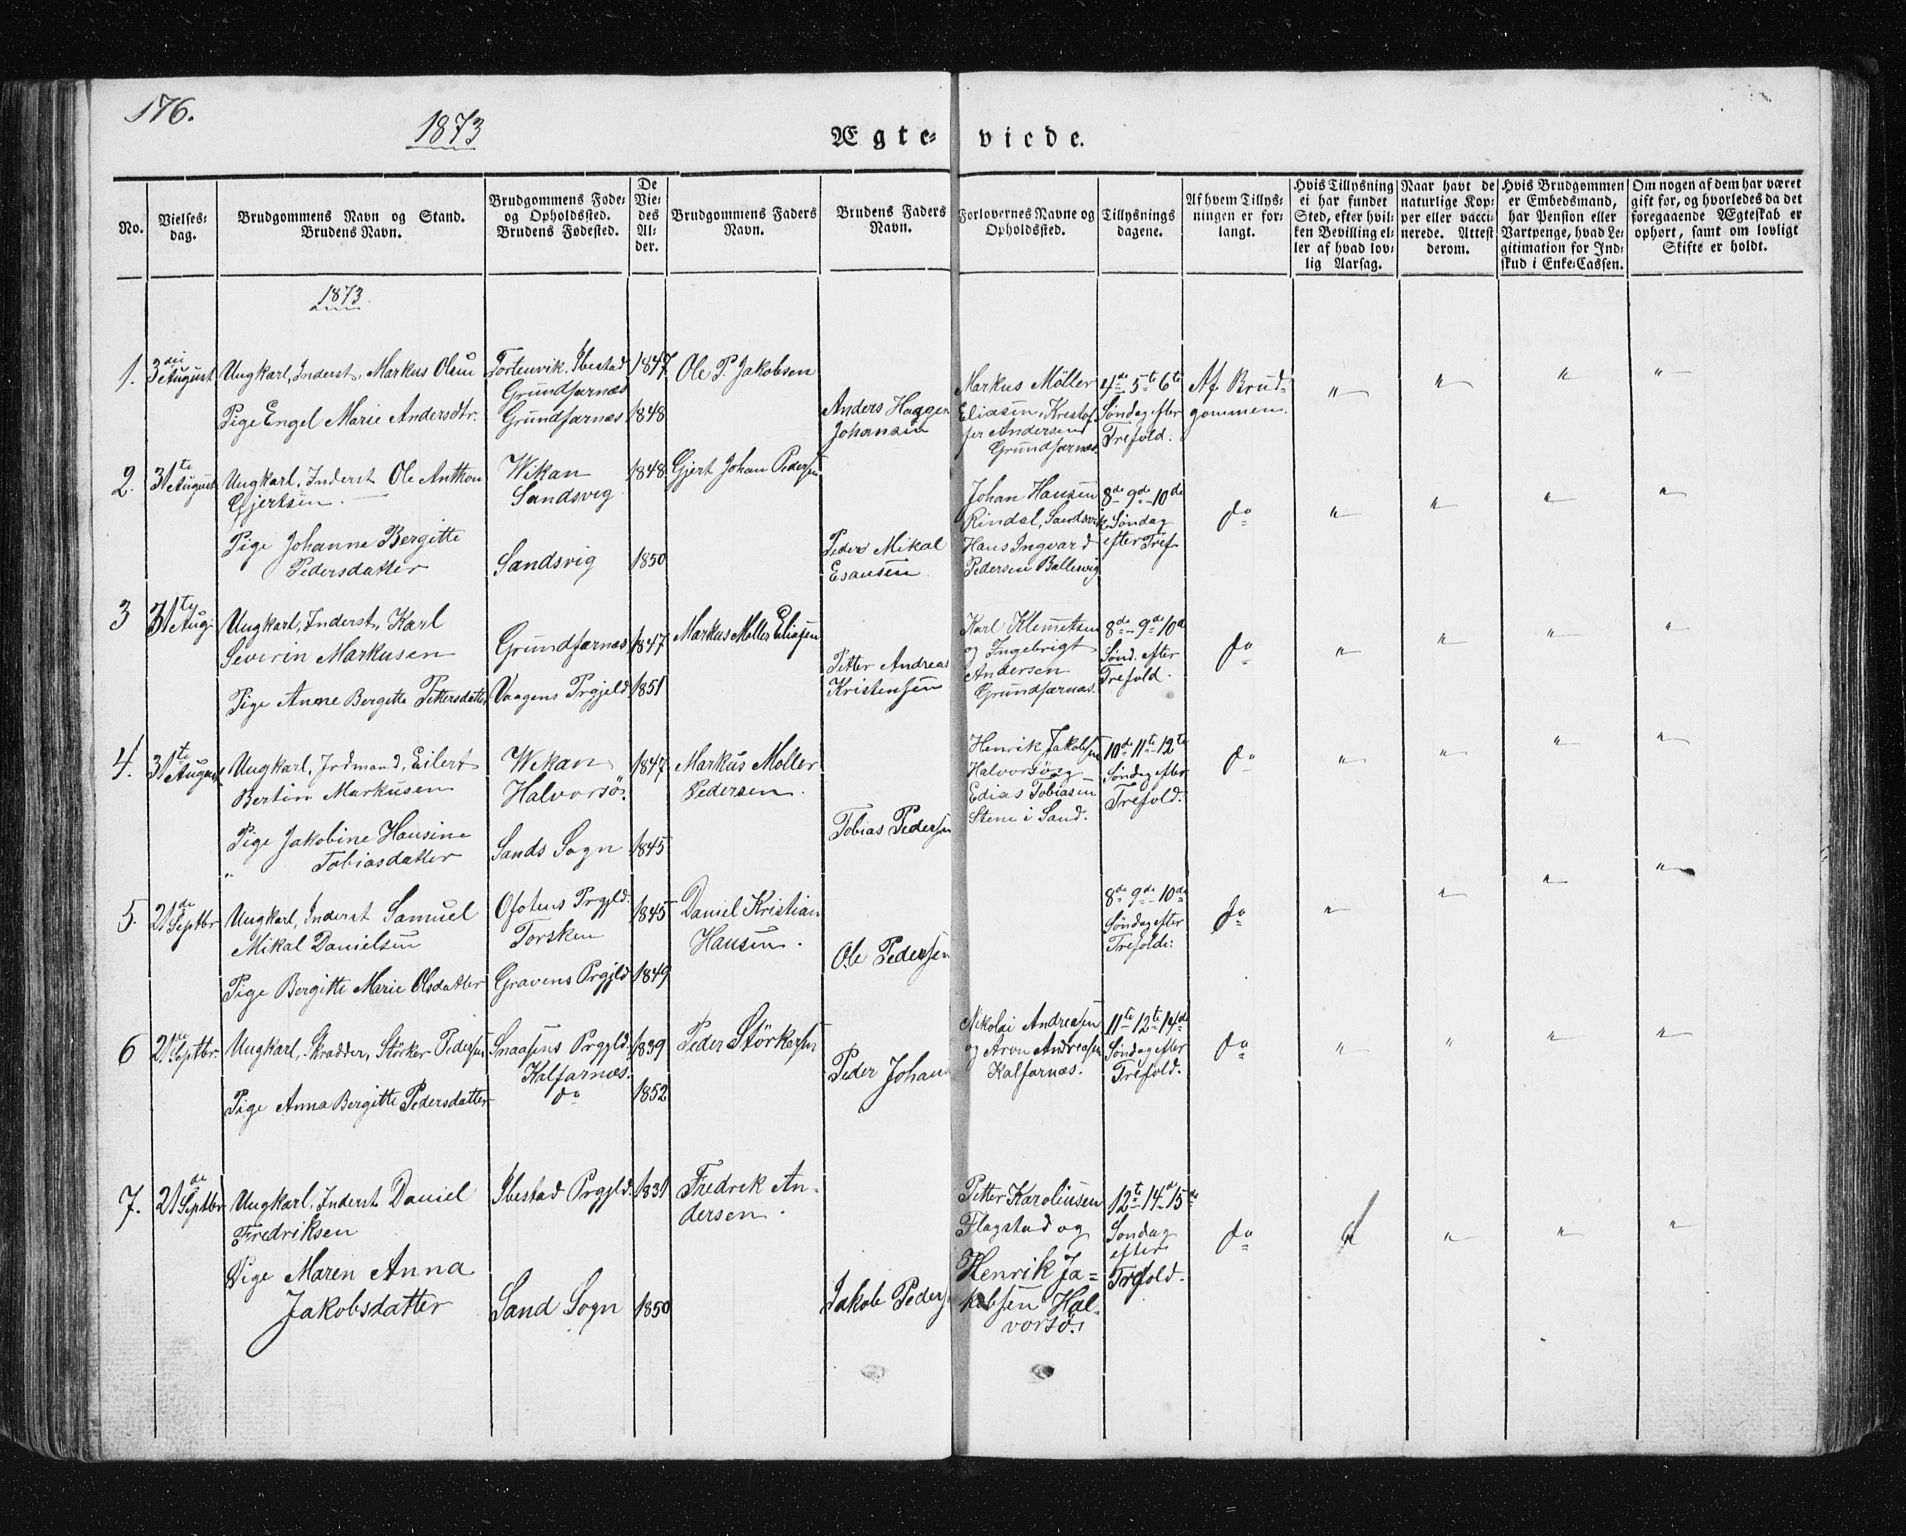 176.
1873
Ægte- viede.
No.
Vielses-
dag.
Brudgommens Navn og Stand.
Brudens Navn.
Brudgommens Føde-
og Opholdssted.
Brudens Fødested.
De
Vie-
des
Al-
der.
Brudgommens Faders
Navn.
Brudens Faders
Navn.
Forlovernes Navne og
Opholdssted.
Tillysnings
dagene.
Af hvem Tillys-
ningen er for-
langt.
Hvis Tillysning
ei har fundet
Sted, efter hvil-
ken Bevilling el-
ler af hvad lov-
lig Aarsag.
Naar havt de
naturlige Kop-
per eller vacci-
nerede. Attest
derom.
Hvis Brudgommen
er Embedsmand,
har Pension eller
Vartpenge, hvad Le-
gitimation for Ind-
skud i Enke-Cassen.
Om nogen af dem har været
gift før, og hvorledes da det
foregaaende Ægteskab er
ophørt, samt om lovligt
Skifte er holdt.
1873.
1. 3die August
Ungkarl, Inderst, Markus Olsen
Pige Engel Marie Andersdtr.
Tortenvik, Ibestad
Grundfarnæs
Grundfarnæs
1847
1848
Ole P. Jakobsen
Anders Haagen
Johansen
Markus Møller
Eliasen, Kristof-
fer Andersen
Grundfarnæs
4de 5te 6te
Søndag efter
Trefold.
Af Brud-
gommen.
" " " "
2. 31te August
Ungkarl, Inderst Ole Anthon
Gjertsen.
Pige Johanne Bergitte
Pedersdatter
Wikan
Sandsvig
Sandsvig
1848
1850
Gjert Johan Pedersen
Peder Mikal
Esausen
Johan Hansen
Rindal, Sandsvik
Hans Ingvard
Pedersen Ballesvig
8de 9de 10de
Søndag
efter Tref.
do
" " " "
3 31te Aug:
Ungkarl, Inderst, Karl
Severin Markusen
Pige Anne Bergitte Pettersdatter
Grundfarnæs
Vaagens Prgjeld
1847
1851
Markus Møller Eliasen
Petter Andreas
Kristensen
Karl Klemetsen
og Ingebrigt
Andersen
Grundfarnæs.
8de 9de 10d
Sønd. efter
Trefold.
do
" " " "
4. 31te August
Ungkarl, Jordmand, Eilert
Bertin Markusen
Pige Jakobine Hansine
" Tobiasdatter
Wikan
Halvorsø.
Sands Sogn
1847
1845
Markus Moller
Pedersen.
Tobias Pedersen
Henrik Jakobsen
Halvorsø og
Edias Tobiasen
Stene i Sand.
10de 11te 12te
Søndag efter
Trefold.
do
" " " "
5. 21de Septbr
Ungkarl, Inderst Samuel
Mikal Danielsen
Pige Bergitte Marie Olsdatter
Ofotens Prgjld.
Torsken
Gravens Prgjld
1845
1849
Daniel Kristian
Hansen.
Ole Pedersen
8de 9de 10de
Søndag efter
Trefolde:
do
" " " "
6 21de Septbr.
Ungkarl, Skrædder, Störker Pedersen
Pige Anna Bergitte Pedersdatter
Snaasens Prgjld.
Kalfarnæs.
do
1839
1852
Peder Störkersen
Peder Johans
Nikolai Andreasen
og Aron Andreasen
Kalfarnæs.
11te 12te 14de
Søndag efter
Trefold.
do
" " " "
7. 21de Septbr
Ungkarl, Inderst Daniel
Fredriksen
Pige Maren Anna
Jakobsdatter
Ibestad Prgjld.
Sand Sogn
1831
1850
Fredrik An-
dersen.
Jakob Peders
Petter Karolinsen
Flagstad og
Henrik Ja-
kobsen Hal-
vorsø.
12te 14d 15de
Søndag
efter
Trefold.
do
" " "